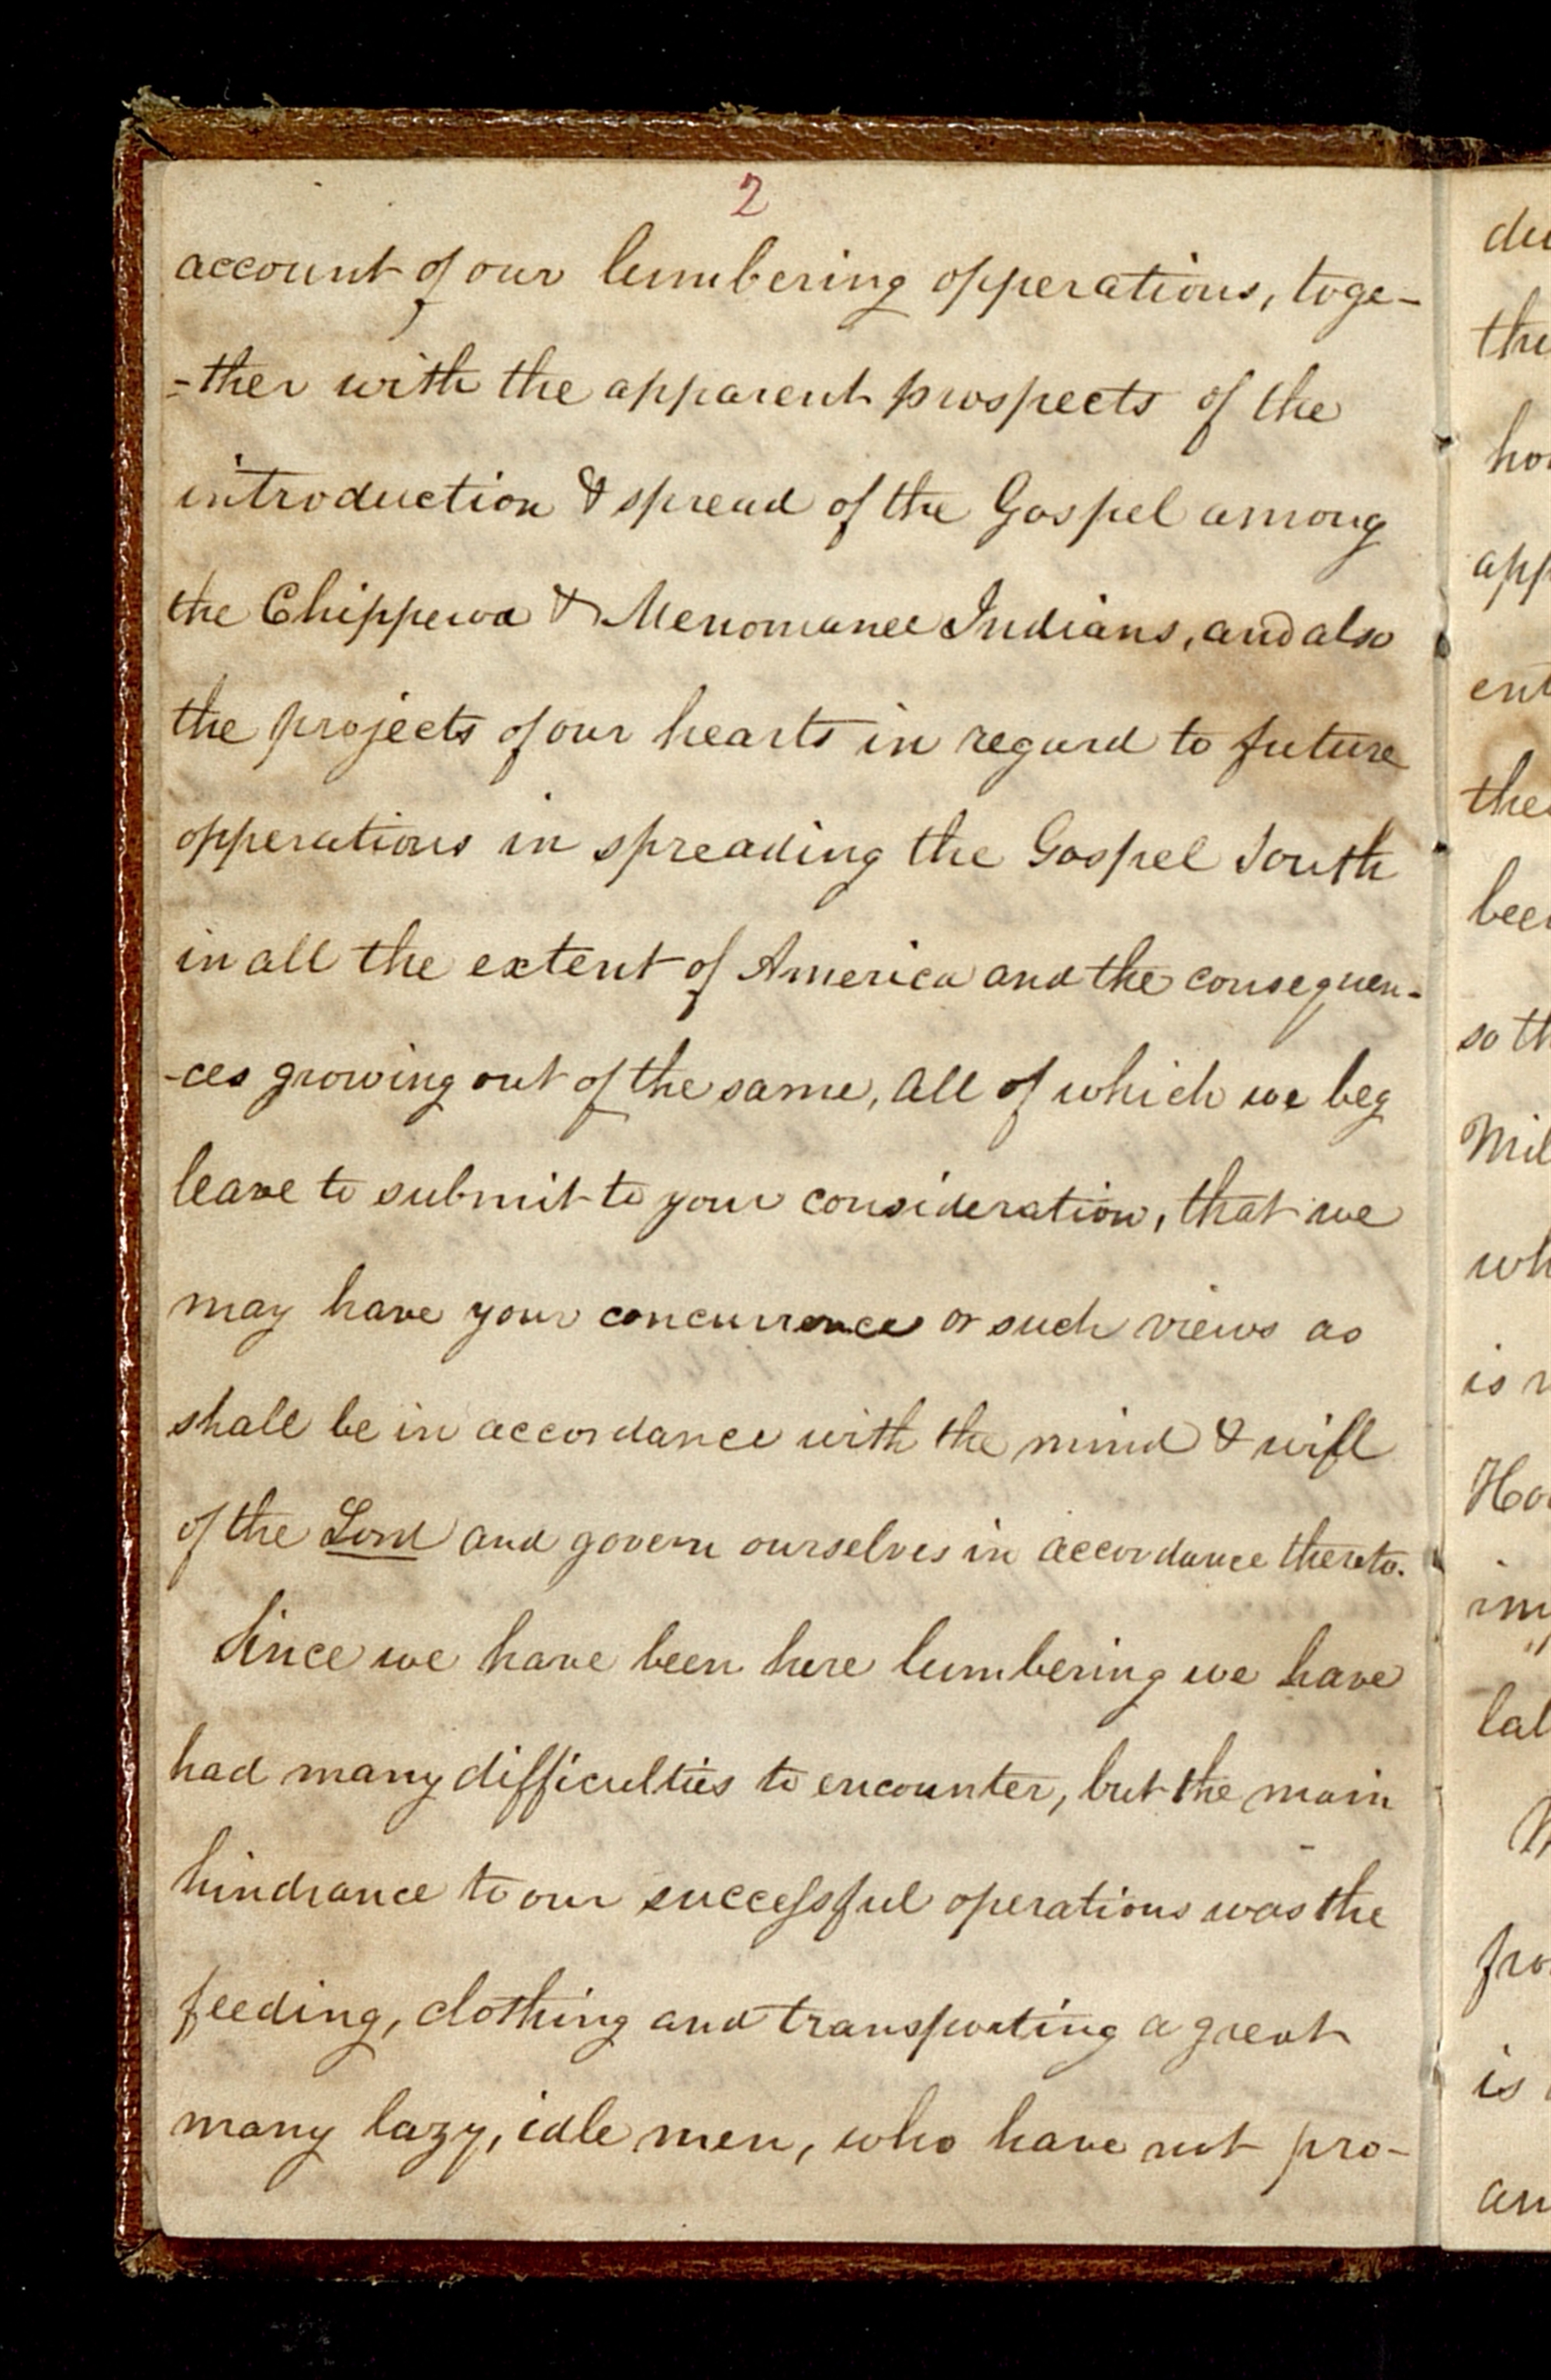 2
account of our lumbering opperations, toge-
-ther with the apparent prospects of the
introduction & spread of the Gospel among
the Chippewa & Menomanee Indians, and also
the projects of our hearts in regard to future
opperations in spreading the Gospel South
in all the extent of America and the consequen-
-ces growing out of the same, all of which we beg
leave to submit to your consideration, that we
may have your concurrence or such views as
shall be in accordance with the mind & will
of the Lord and govern ourselves in accordance thereto.
Since we have been here lumbering we have
had many difficulties to encounter, but the main
hindrance to our successful operations was the
feeding, clothing and transporting a great
many lazy, idle men, who have not pro-